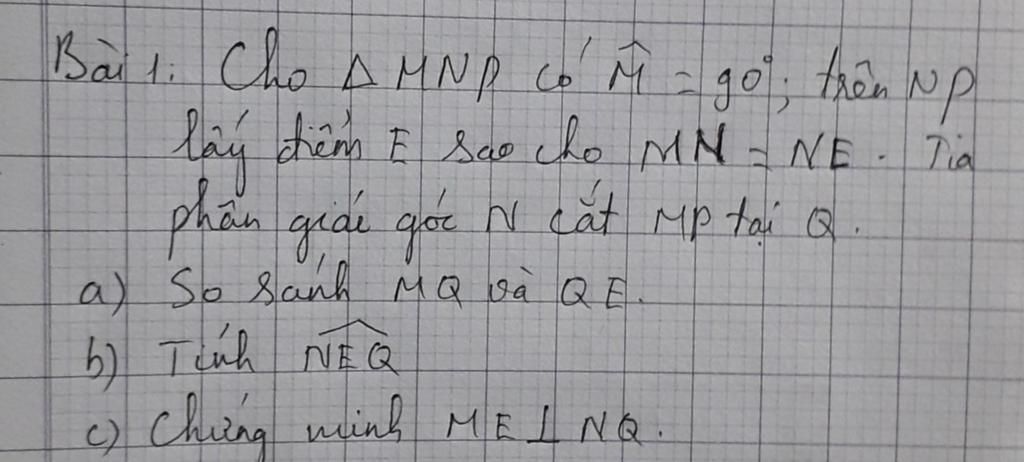 Bài 1: Cho Δ MNP có M̂ = 90°; trên NP
lấy điểm E sao cho MN = NE. Tia
phân giác góc N cắt MP tại Q.
a) So sánh MQ và QE.
b) Tính \widehat{NEQ}
c) Chứng minh ME ⊥ NQ.